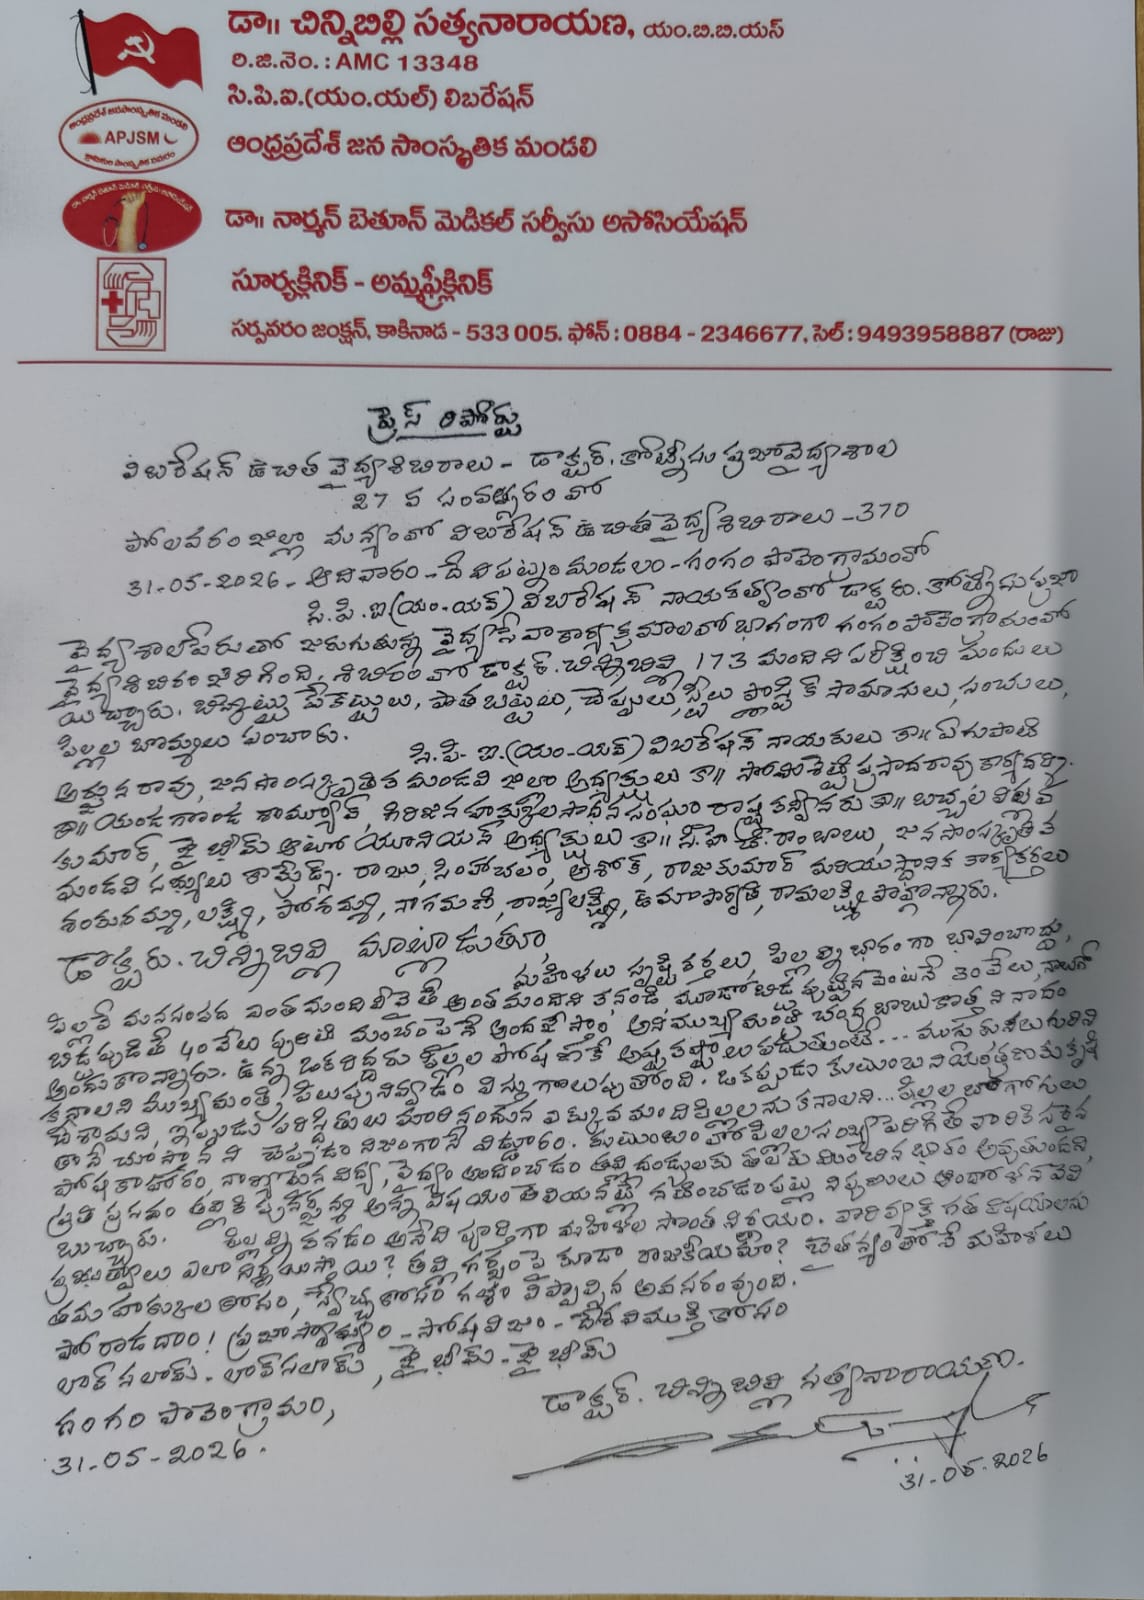 డా॥ చిన్నిబిల్లి సత్యనారాయణ, యం.బి.బి.యస్
రి.జి.నెం. : AMC 13348
సి.పి.ఐ.(యం.యల్) లిబరేషన్
ఆంధ్రప్రదేశ్ జన సాంస్కృతిక మండలి
APJSM
డా॥ నార్మన్ బెతూన్ మెడికల్ సర్వీసు అసోసియేషన్
సూర్యక్లినిక్ - అమ్మఫ్రీక్లినిక్
సర్పవరం జంక్షన్, కాకినాడ - 533 005. ఫోన్ : 0884 - 2346677, సెల్ : 9493958887 (రాజు)
ప్రెస్ రిపోర్టు
లిబరేషన్ ఉచిత వైద్యశిబిరాలు - డాక్టర్. కోట్నీసు ప్రజావైద్యశాల
27 వ సంవత్సరంలో
పోలవరం జిల్లా మన్యంలో లిబరేషన్ ఉచిత వైద్యశిబిరాలు - 370
31-05-2026 - ఆదివారం - దేవిపట్నం మండలం - గంగంపాలెం గ్రామంలో
సి.పి.ఐ(యం-యల్) లిబరేషన్ నాయకత్వంలో డాక్టరు. కోట్నీసు ప్రజా
వైద్యశాల పేరుతో జరుగుతున్న వైద్యసేవా కార్యక్రమాలలో భాగంగా గంగంపాలెం గ్రామంలో
వైద్యశిబిరం జరిగింది. శిబిరంలో డాక్టర్. చిన్నిబిల్లి 173 మందిని పరీక్షించి మందులు
యిచ్చారు. బిస్కెట్టు పేకెట్టులు, పాత బట్టలు, చెప్పులు, స్టీలు ప్లాస్టిక్ సామానులు, సంచులు,
పిల్లల బొమ్మలు పంచారు.
సి.పి-ఐ.(యం-యల్) లిబరేషన్ నాయకులు కా॥ ఏగుపాటి
అర్జునరావు, జనసాంస్కృతిక మండలి జిల్లా అధ్యక్షులు కా॥ సోమిశెట్టి ప్రసాదరావు కార్యదర్శి.
కా॥ యండగొండ శామ్యూల్, గిరిజన హక్కుల సాధన సంఘం రాష్ట్ర కన్వీనరు కా॥ బచ్చల
కుమార్, జై భీమ్ ఆటో యూనియన్ అధ్యక్షులు కా॥ సి.హెచ్. రాంబాబు, జనసాంస్కృతిక
మండలి సభ్యులు కామ్రేడ్స్. రాజు, సింహాచలం, అశోక్, రాజకుమార్ మరియు స్థానిక కార్యకర్తలు
శంకురమ్మ, లక్ష్మి, పోశమ్మ, నాగమణి, రాజ్యలక్ష్మి, ఉమాపార్వతి, రామలక్ష్మి పాల్గొన్నారు.
డాక్టరు. చిన్నిబిల్లి మాట్లాడుతూ,
మహిళలు సృష్టికర్తలు పిల్లల్ని భారంగా భావించొద్దు,
పిల్లలే మనసంపద ఎంతమంది వీలైతే అంతమందిని కనండి, మూడో బిడ్డ పుట్టిన వెంటనే 30వేలు, నాలుగో
బిడ్డ పుడితే 40 వేలు పురిటి మంచంపైనే అందజేస్తాం అని ముఖ్యమంత్రి చంద్రబాబు కొత్త నినాదం
అందుకొన్నారు. ఉన్న ఒకరిద్దరు పిల్లల పోషణకే అష్టకష్టాలు పడుతుంటే... ముగ్గురు నలుగురిని
కనాలని ముఖ్యమంత్రి పిలుపునివ్వడం విస్తుగొలుపుతోంది. ఒకప్పుడు కుటుంబ నియంత్రణకు కృషి
చేశామని, ఇప్పుడు పరిస్థితులు మారినందున ఎక్కువ మంది పిల్లలను కనాలని... పిల్లల బాగోగులు
తానే చూస్తానని చెప్పడం నిజంగానే విడ్డూరం. కుటుంబంలో పిల్లల సంఖ్య పెరిగితే వారికి సరైన
పోషకాహారం, నాణ్యమైన విద్య, వైద్యం అందించడం తల్లిదండ్రులకు తలకు మించిన భారం అవుతుందని,
ప్రతి ప్రసవం తల్లికి పునర్జన్మ అన్న విషయం తెలియనట్లే నటించడంపట్ల నిపుణులు ఆందోళన వెలి
బుచ్చారు. పిల్లల్ని కనడం అనేది పూర్తిగా మహిళల సొంత నిర్ణయం. వారి వ్యక్తిగత విషయాలను
ప్రభుత్వాలు ఎలా నిర్ణయిస్తాయి? తల్లి గర్భంపై కూడా రాజకీయమా? చైతన్యంతోనే మహిళలు
తమ హక్కుల కోసం, స్వేచ్ఛకోసం గళం విప్పాల్సిన అవసరంవుంది.
పోరాడదాం! ప్రజాస్వామ్యం - సోషలిజం - దేశవిముక్తి కోసం
లాల్ సలామ్ - లాల్ సలామ్, జై భీమ్ - జై భీమ్
డాక్టర్. చిన్నిబిల్లి సత్యనారాయణ.
గంగంపాలెం గ్రామం,
31-05-2026.
31-05-2026